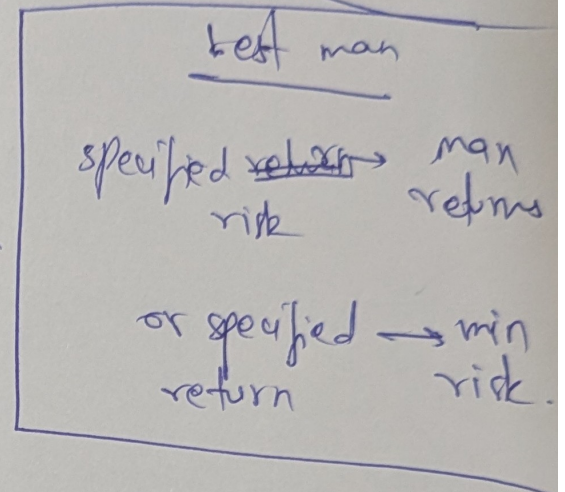 best man
specified return → man
risk returns
or specified → min
return risk.